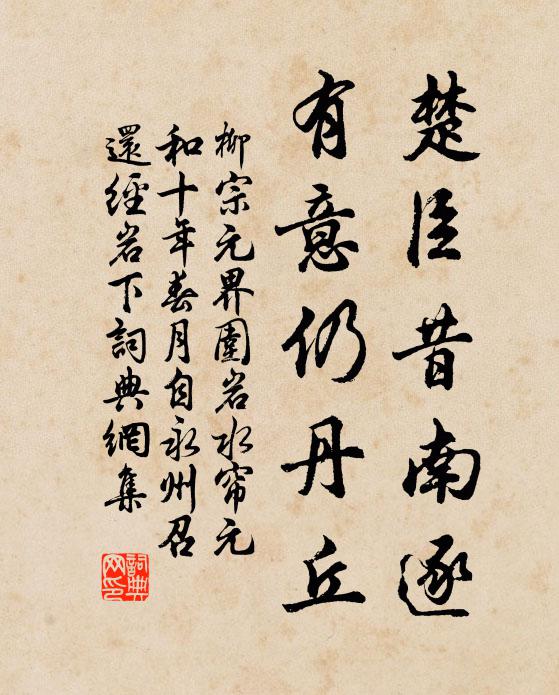 楚臣昔南逐
有意仍丹丘
柳宗元界圍岩水帘元
和十年春月自永州召
還經岩下詞典網集
詞典網印